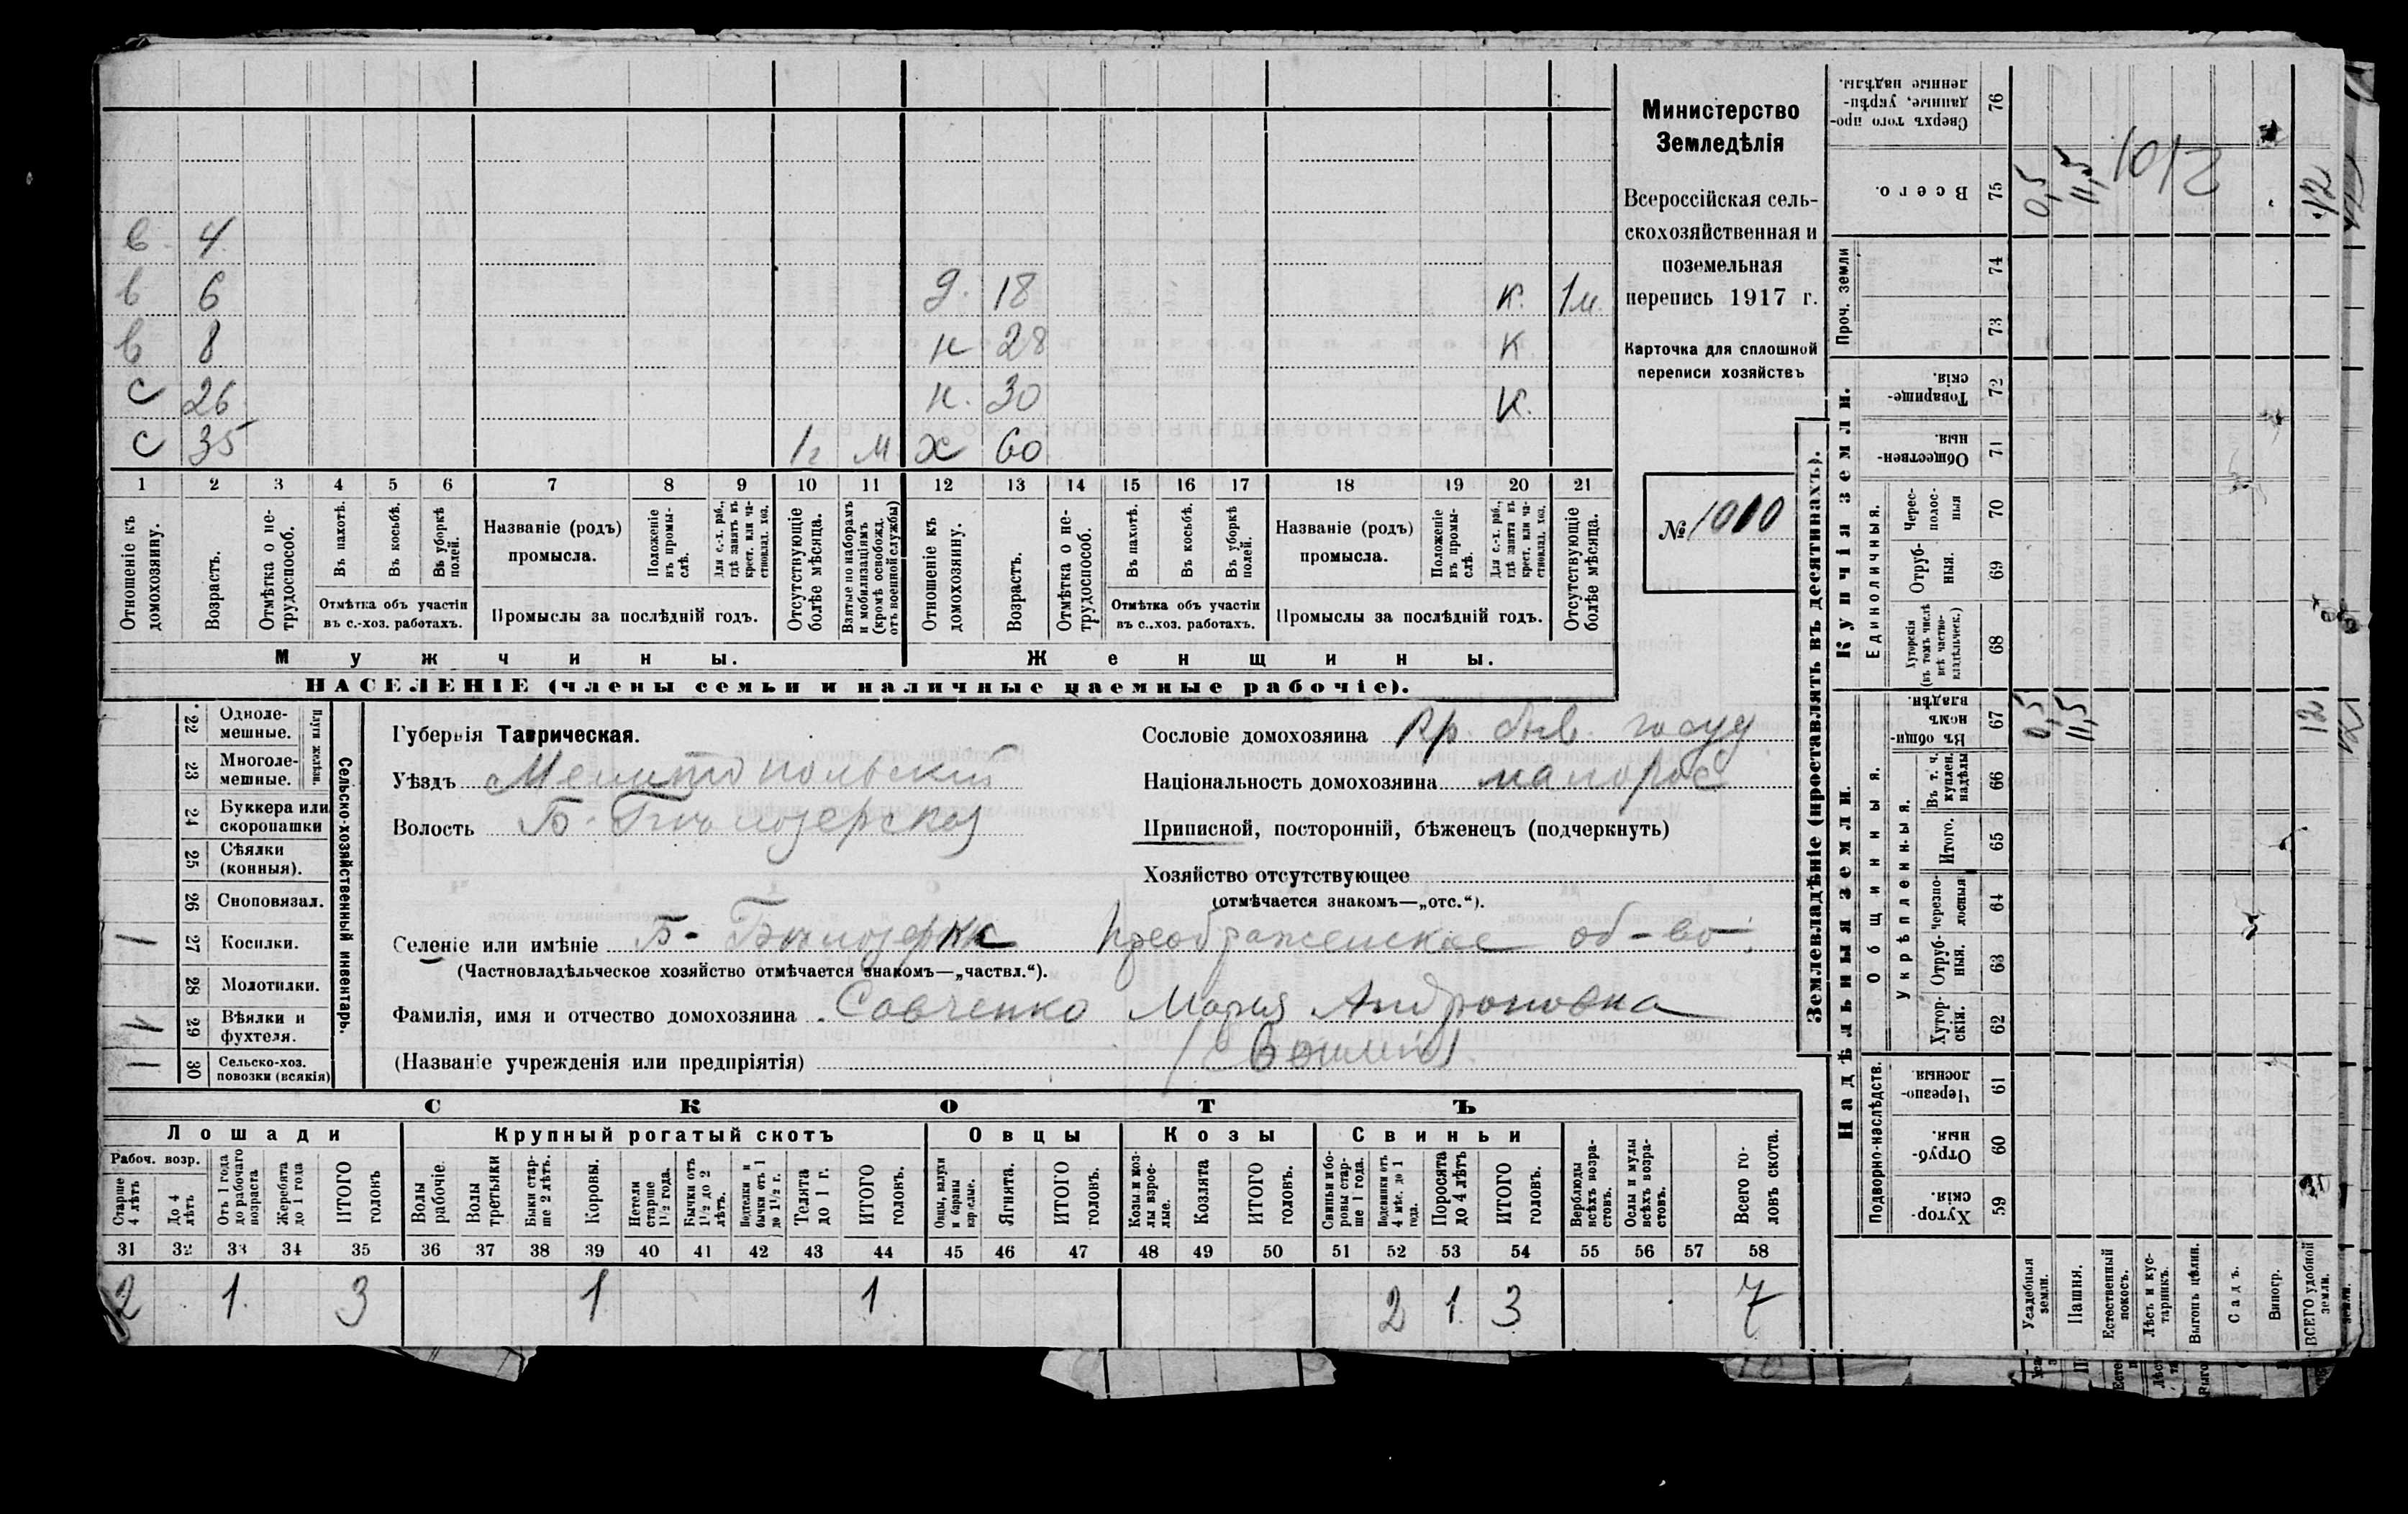 в. 4
в 6 д. 18 к. 1м.
в 8 н 28 к
с 26 н. 30 к.
с 35 1г м х 60
1 2 3 4 5 6 7 8 9 10 11 12 13 14 15 16 17 18 19 20 21
Отношеніе къ домохозяину.
Возрастъ.
Отмѣтка о не-трудоспособ.
Въ пахотѣ.
Въ косьбѣ.
Въ уборкѣ полей.
Отмѣтка объ участіи въ с.-хоз. работахъ.
Названіе (родъ) промысла.
Положеніе въ промы-слѣ.
Для с.-х. раб., гдѣ занятъ въ крест. или ча-стновлад. хоз.
Промыслы за послѣдній годъ.
Отсутствующіе болѣе мѣсяца.
Взятые по наборамъ и мобилизаціямъ (кромѣ освобожд. отъ военной службы)
Отношеніе къ домохозяину.
Возрастъ.
Отмѣтка о не-трудоспособ.
Въ пахотѣ.
Въ косьбѣ.
Въ уборкѣ полей.
Отмѣтка объ участіи въ с..хоз. работахъ.
Названіе (родъ) промысла.
Положеніе въ промы-слѣ.
Для с.-х. раб., гдѣ занята въ крест. или ча-стновлад. хоз.
Промыслы за послѣдній годъ.
Отсутствующіе болѣе мѣсяца.
Мужчины. Женщины.
НАСЕЛЕНІЕ (члены семьи и наличные наемные рабочіе).
Министерство
Земледѣлія
Всероссійская сель-
скохозяйственная и
поземельная
перепись 1917 г.
Карточка для сплошной
переписи хозяйствъ
№ 1010
22 Одноле-мешные.
23 Многоле-мешные.
Плуги желѣзн.
24 Буккера или скоропашки
25 Сѣялки (конныя).
26 Сноповязал.
1 27 Косилки.
28 Молотилки.
1 29 Вѣялки и фухтеля.
1 30 Сельско-хоз. повозки (всякія)
Сельско-хозяйственный инвентарь.
Губернія Таврическая.
Уѣздъ Мелитопольский
Волость Б-Бѣлозерская
Сословіе домохозяина Кр. быв. госуд
Національность домохозяина малорос
Приписной, посторонній, бѣженецъ (подчеркнуть)
Хозяйство отсутствующее
(отмѣчается знакомъ—„отс.“).
Селеніе или имѣніе Б-Бѣлозерка Преображенское об-во.
(Частновладѣльческое хозяйство отмѣчается знакомъ—„частвл.“).
Фамилія, имя и отчество домохозяина Савченко Мария Андроновна
(Названіе учрежденія или предпріятія)
СКОТЪ
Лошади Крупный рогатый скотъ Овцы Козы Свиньи
Рабоч. возр.
Старше 4 лѣтъ
До 4 лѣтъ
Отъ 1 года до рабочаго возраста
Жеребята до 1 года
ИТОГО головъ
Волы рабочіе.
Волы третьяки
Быки стар-ше 2 лѣтъ.
Коровы.
Нетели старше 1½ года.
Бычки отъ 1½ до 2 лѣтъ.
Подтелки и бычки отъ 1 до 1½ г.
Телята до 1 г.
ИТОГО головъ.
Овцы, валухи и бараны взрослые.
Ягнята.
ИТОГО головъ.
Козы и коз-лы взрос-лые.
Козлята
ИТОГО головъ.
Свиньи и бо-ровы стар-ше 1 года.
Подсвинки отъ 4 мѣс. до 1 года.
Поросята до 4 лѣтъ
ИТОГО головъ.
Верблюды всѣхъ возра-стовъ.
Ослы и мулы всѣхъ возра-стовъ.
Всего го-ловъ скота.
31 32 33 34 35 36 37 38 39 40 41 42 43 44 45 46 47 48 49 50 51 52 53 54 55 56 57 58
2 1. 3 1 1. 2 1. 3 7
Землевладѣніе (проставлять въ десятинахъ).
Надѣльныя земли. Купчія земли.
Подворно-наслѣдств.
Общинныя.
Укрѣпленныя.
Единоличныя.
Проч. земли
Хутор-скія. 59
Отруб-ныя. 60
Черезпо-лосныя 61
Хутор-скія. 62
Отруб-ныя. 63
Черезпо-лосныя 64
Итого. 65
Въ т. ч. куплен. надѣлы 66
Въ общи-номъ владѣн. 67
Хуторскія (въ томъ числѣ всѣ частно-владѣльческ.) 68
Отруб-ныя. 69
Черес-полос-ныя 70
Обществен-ныя. 71
Товарище-скія. 72
73
74
Всего. 75
Сверхъ того про-данные, укрѣп-ленные надѣлы. 76
Усадебныя земли. 0,5 0,5
Пашня. 11,5 11,5
Естественный покосъ.
Лѣсъ и кус-тарникъ.
Выгонъ цѣлин.
Садъ.
Виногр.
ВСЕГО удобной земли. 12 12
1012